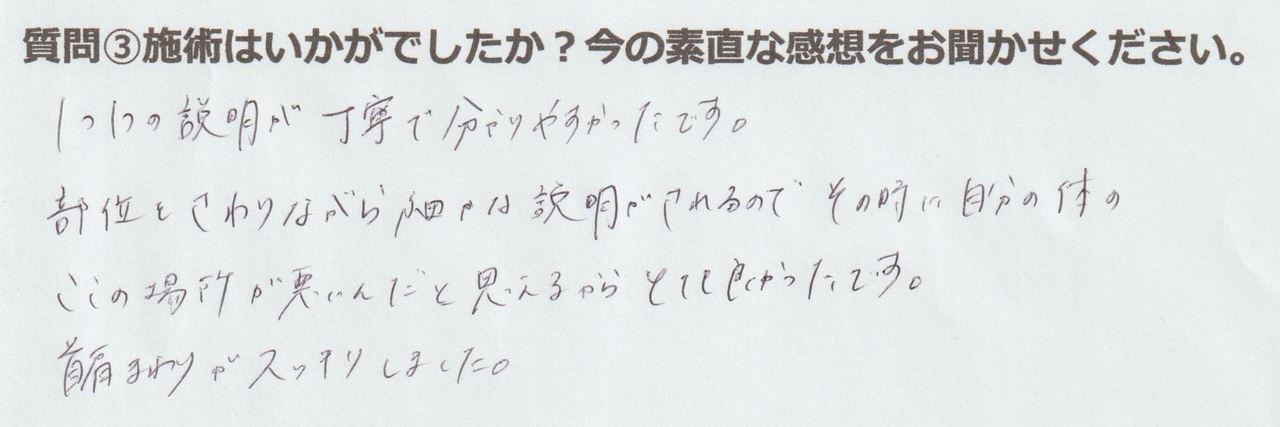 質問③施術はいかがでしたか？今の素直な感想をお聞かせください。
1つ1つの説明が丁寧で分かりやすかったです。
部位をさわりながら細かな説明がされるので その時に自分の体の
ここの場所が悪いんだと思えるからとても良かったです。
首肩まわりがスッキリしました。